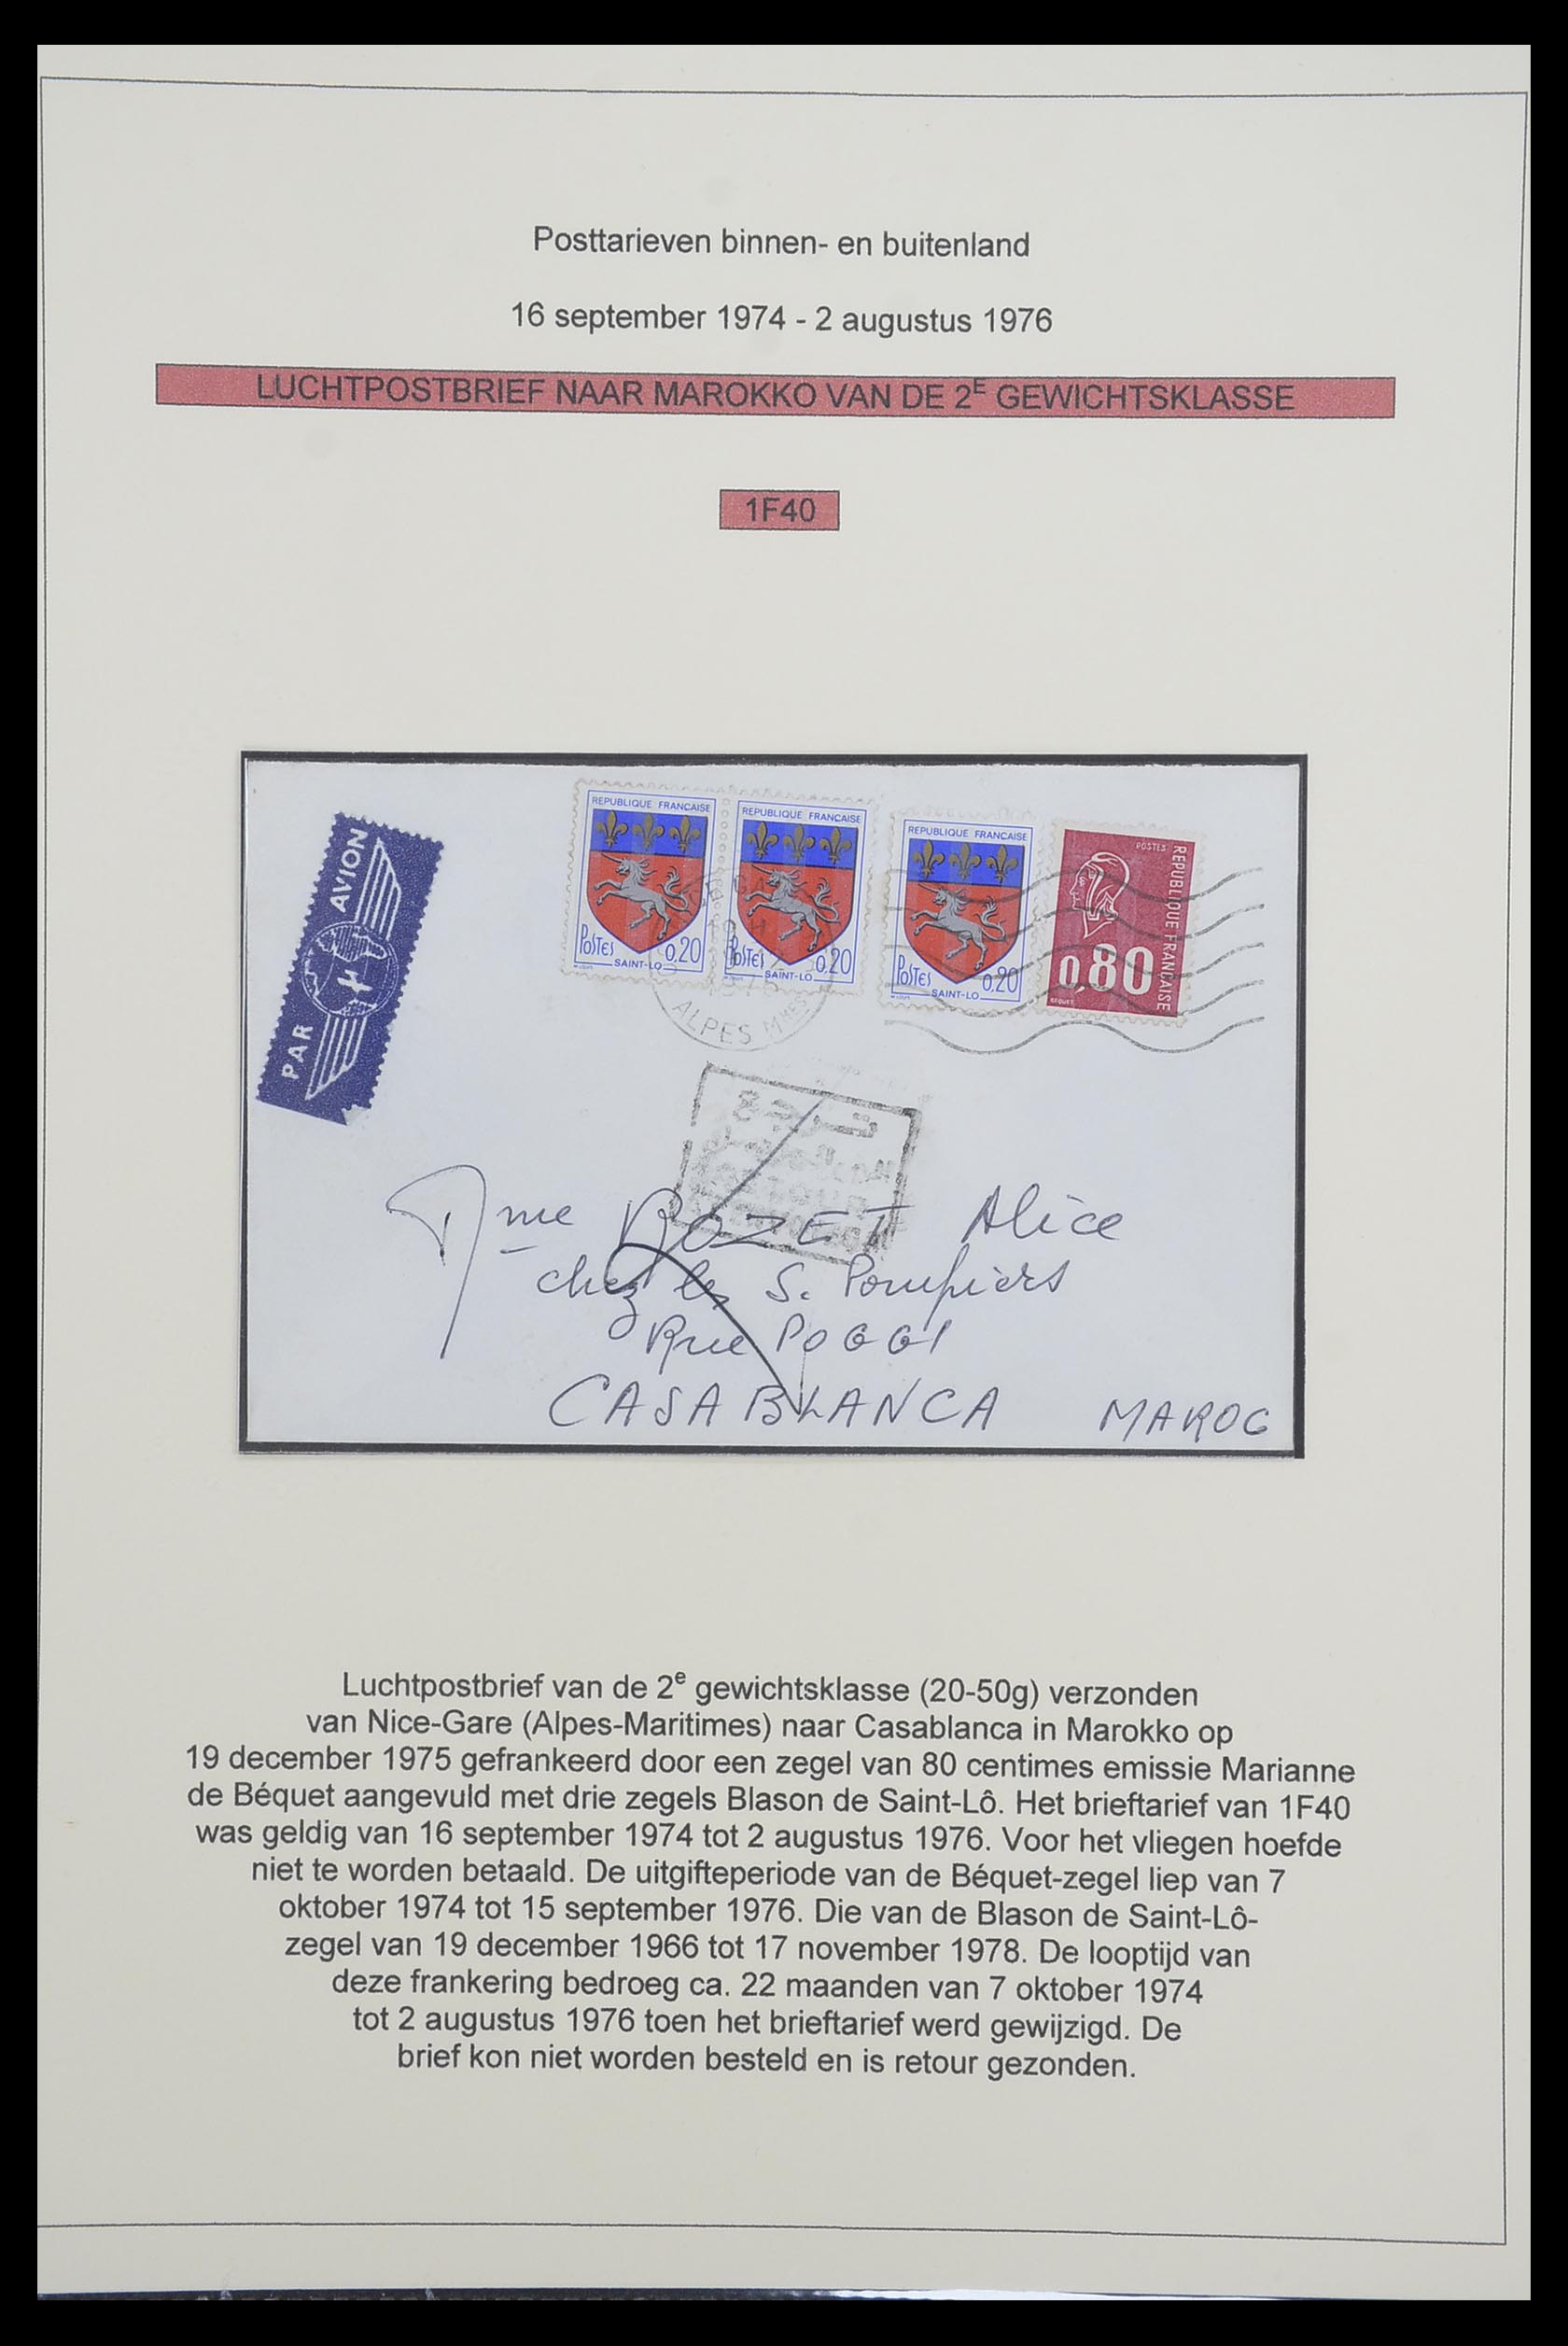 Posttarieven binnen- en buitenland
16 september 1974 - 2 augustus 1976
LUCHTPOSTBRIEF NAAR MAROKKO VAN DE 2E GEWICHTSKLASSE
1F40
PAR AVION
REPUBLIQUE FRANCAISE
POSTES 0,20
SAINT-LO
REPUBLIQUE FRANCAISE
POSTES 0,20
SAINT-LO
REPUBLIQUE FRANCAISE
POSTES 0,20
SAINT-LO
POSTES
REPUBLIQUE FRANCAISE
0,80
BEQUET
1975
ALPES Mmes
Mme ROZET Alice
chez les S. Pompiers
Rue POGGI
CASABLANCA MAROC
Luchtpostbrief van de 2e gewichtsklasse (20-50g) verzonden
van Nice-Gare (Alpes-Maritimes) naar Casablanca in Marokko op
19 december 1975 gefrankeerd door een zegel van 80 centimes emissie Marianne
de Béquet aangevuld met drie zegels Blason de Saint-Lô. Het brieftarief van 1F40
was geldig van 16 september 1974 tot 2 augustus 1976. Voor het vliegen hoefde
niet te worden betaald. De uitgifteperiode van de Béquet-zegel liep van 7
oktober 1974 tot 15 september 1976. Die van de Blason de Saint-Lô-
zegel van 19 december 1966 tot 17 november 1978. De looptijd van
deze frankering bedroeg ca. 22 maanden van 7 oktober 1974
tot 2 augustus 1976 toen het brieftarief werd gewijzigd. De
brief kon niet worden besteld en is retour gezonden.